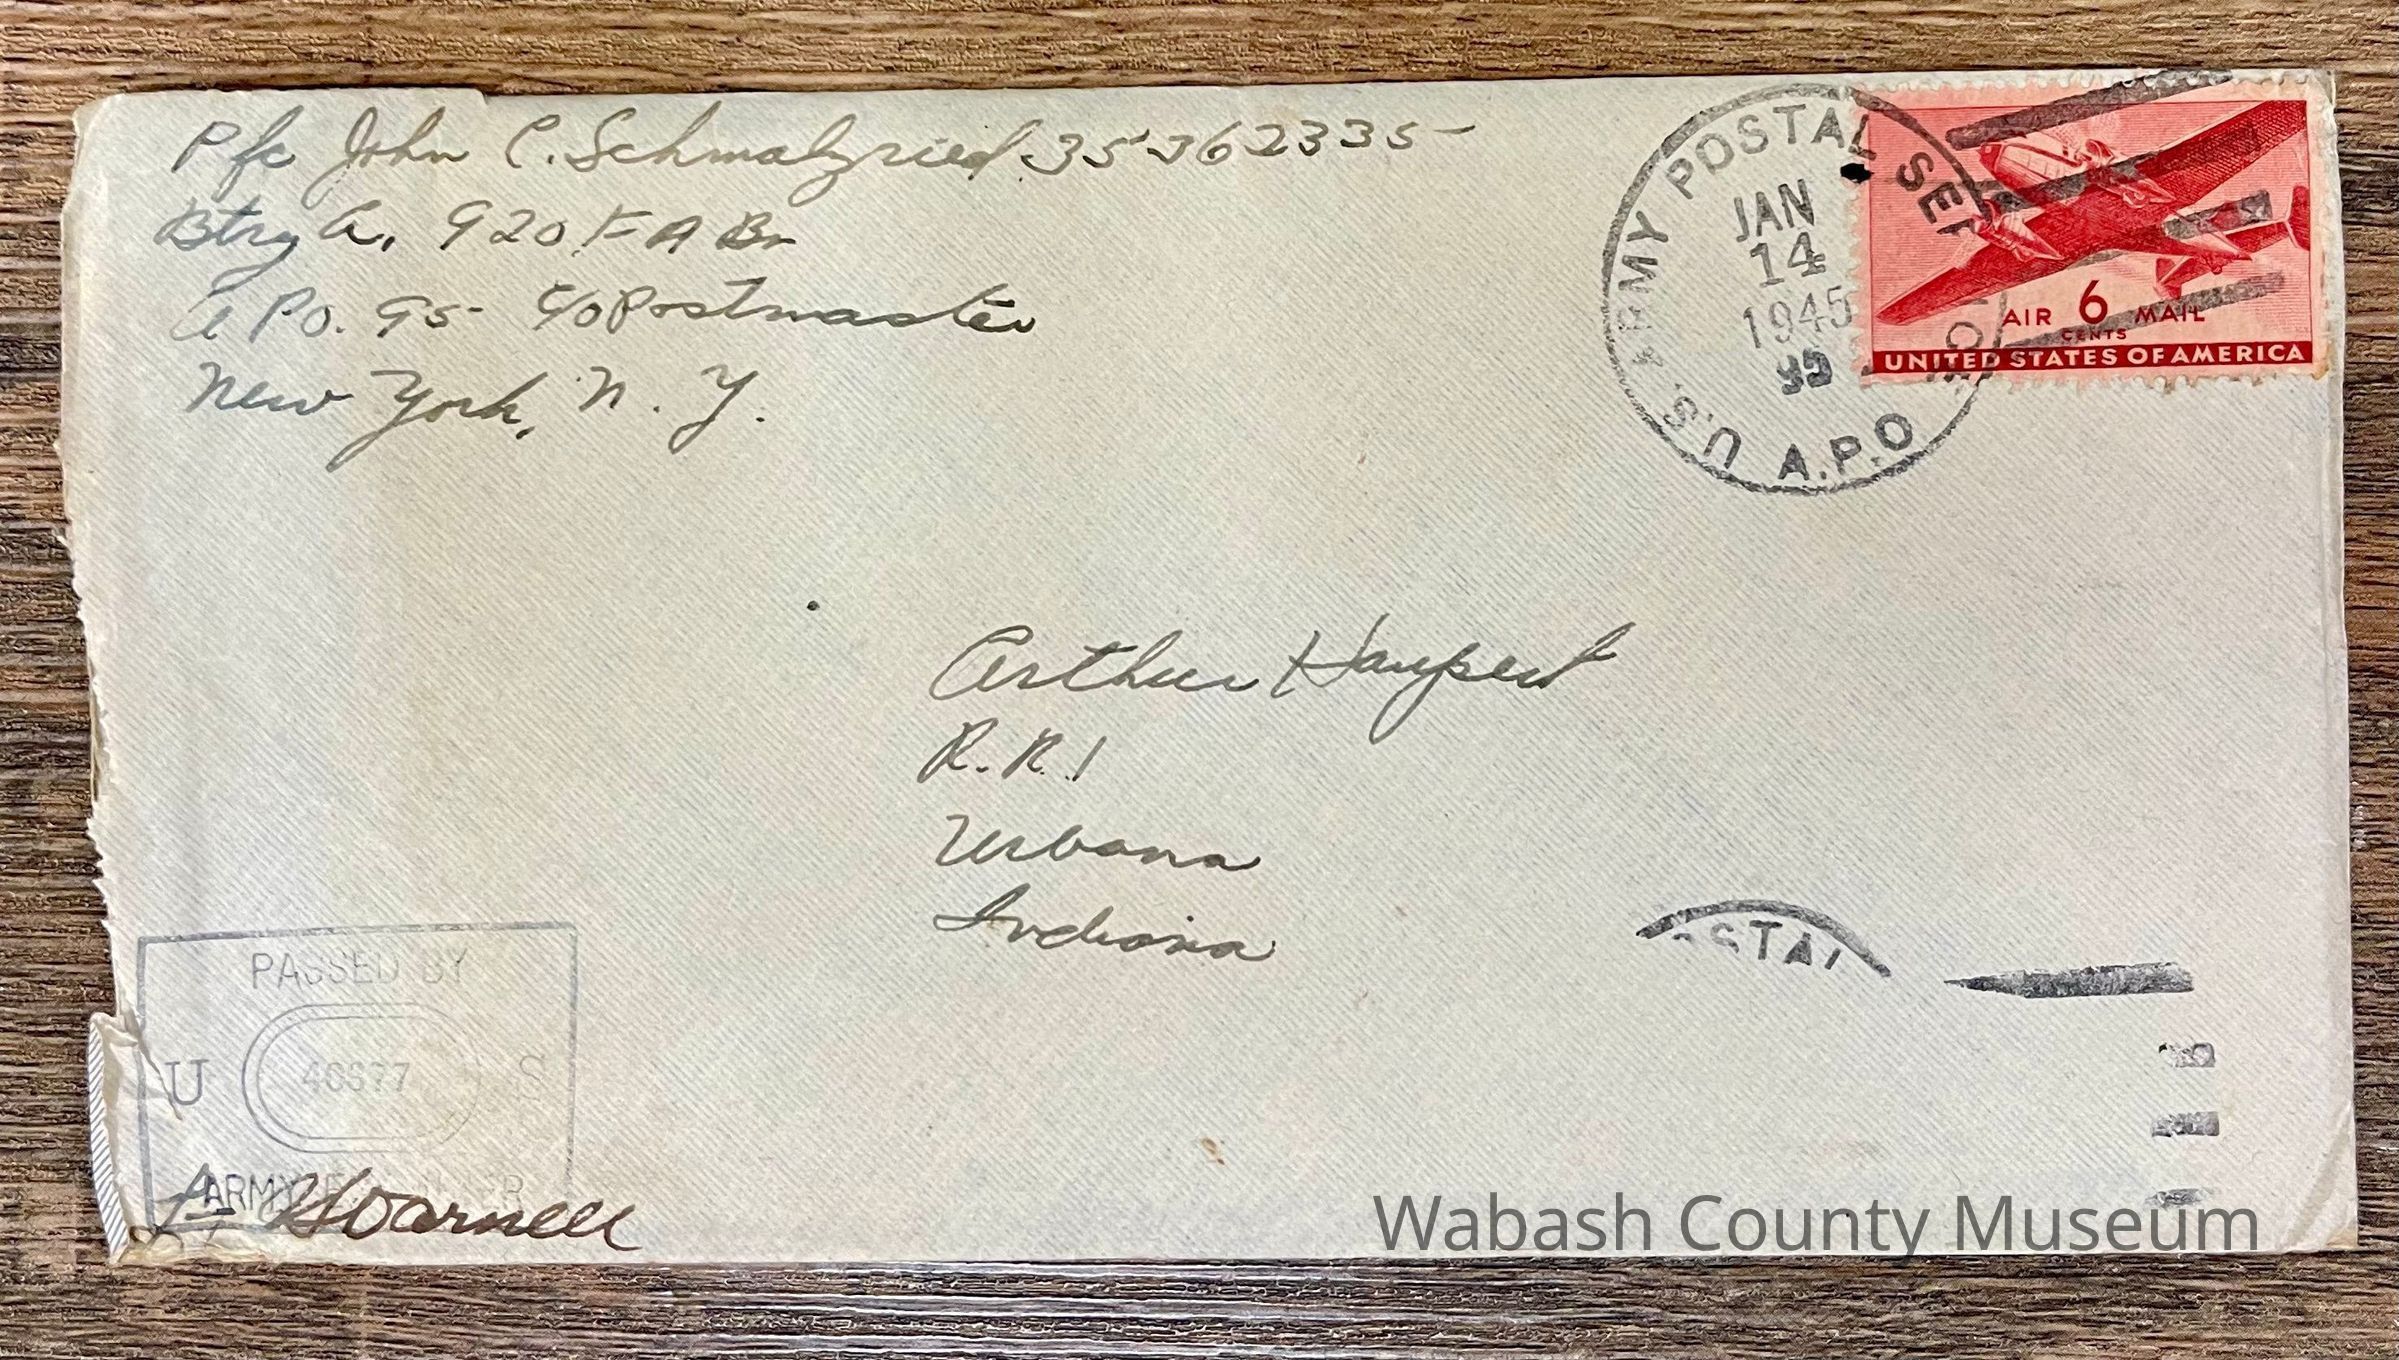 Pfc John C. Schmalzried 35362335
Btry A. 920 F A Bn
A P O. 95 c/o Postmaster
New York, N. Y.
U.S. ARMY POSTAL SER
A.P.O
JAN
14
1945
95
AIR 6 MAIL
CENTS
UNITED STATES OF AMERICA
Arthur Haupert
R. R. 1
Urbana
Indiana
OSTAL
PASSED BY
U S
ARMY EXAMINER
Wabash County Museum